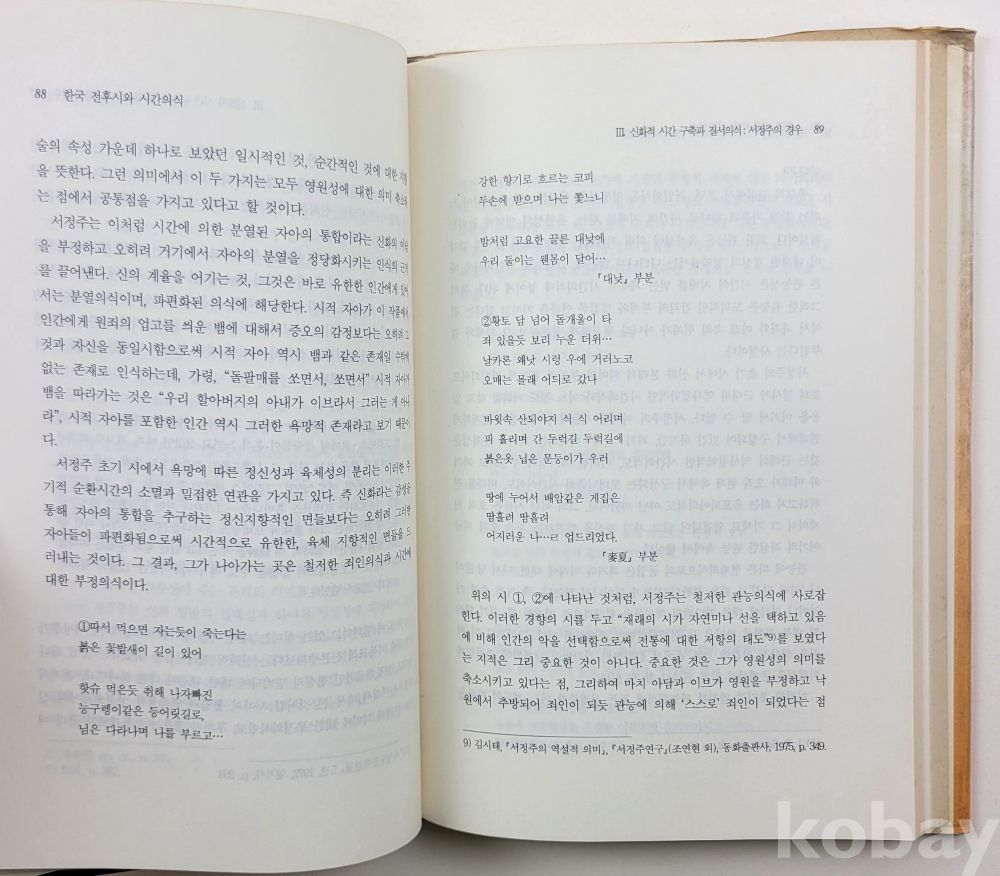 88 한국 전후시와 시간의식
술의 속성 가운데 하나로 보았던 일시적인 것, 순간적인 것에 대한
을 뜻한다. 그런 의미에서 이 두 가지는 모두 영원성에 대한 의미
는 점에서 공통점을 가지고 있다고 할 것이다.
서정주는 이처럼 시간에 의한 분열된 자아의 통합이라는 신화의
을 부정하고 오히려 거기에서 자아의 분열을 정당화시키는 인식의
를 끌어낸다. 신의 계율을 어기는 것, 그것은 바로 유한한 인간에게
서는 분열의식이며, 파편화된 의식에 해당한다. 시적 자아가 이 작품에서
인간에게 원죄의 업고를 씌운 뱀에 대해서 증오의 감정보다는 오히려 그
것과 자신을 동일시함으로써 시적 자아 역시 뱀과 같은 존재일 수밖에
없는 존재로 인식하는데, 가령, “돌팔매를 쏘면서, 쏘면서” 시적 자아가
뱀을 따라가는 것은 “우리 할아버지의 아내가 이브라서 그러는 게 아니
라”, 시적 자아를 포함한 인간 역시 그러한 욕망적 존재라고 보기 때문이
다.
서정주 초기 시에서 욕망에 따른 정신성과 육체성의 분리는 이러한 주
기적 순환시간의 소멸과 밀접한 연관을 가지고 있다. 즉 신화라는 감성을
통해 자아의 통합을 추구하는 정신지향적인 면들보다는 오히려 그러한
자아들이 파편화됨으로써 시간적으로 유한한, 육체 지향적인 면들을 드
러내는 것이다. 그 결과, 그가 나아가는 곳은 철저한 죄인의식과 시간에
대한 부정의식이다.
①따서 먹으면 자는듯이 죽는다는
붉은 꽃밭새이 길이 있어
핫슈 먹은듯 취해 나자빠진
능구렝이같은 등어릿길로,
님은 다라나며 나를 부르고…
Ⅲ. 신화적 시간 구축과 질서의식: 서정주의 경우 89
강한 향기로 흐르는 코피
두손에 받으며 나는 쫓느니
밤처럼 고요한 끌른 대낮에
우리 둘이는 웬몸이 달어…
「대낮」 부분
②황토 담 넘어 돌개울이 타
죄 있을듯 보리 누운 더위…
날카론 왜낫 시렁 우에 거러노코
오매는 몰래 어듸로 갔나
바윗속 산되야지 식 식 어리며
피 흘리며 간 두럭길 두럭길에
붉은옷 닙은 문둥이가 우러
땅에 누어서 배암같은 게집은
땀흘려 땀흘려
어지러운 나…ㄹ 엎드리었다.
「麥夏」 부분
위의 시 ①, ②에 나타난 것처럼, 서정주는 철저한 관능의식에 사로잡
힌다. 이러한 경향의 시를 두고 “재래의 시가 자연미나 선을 택하고 있음
에 비해 인간의 악을 선택함으로써 전통에 대한 저항의 태도”9)를 보였다
는 지적은 그리 중요한 것이 아니다. 중요한 것은 그가 영원성의 의미를
축소시키고 있다는 점, 그리하여 마치 아담과 이브가 영원을 부정하고 낙
원에서 추방되어 죄인이 되듯 관능에 의해 ‘스스로’ 죄인이 되었다는 점
9) 김시태, 「서정주의 역설적 의미」, 『서정주연구』(조연현 외), 동화출판사, 1975, p. 349.
kobay